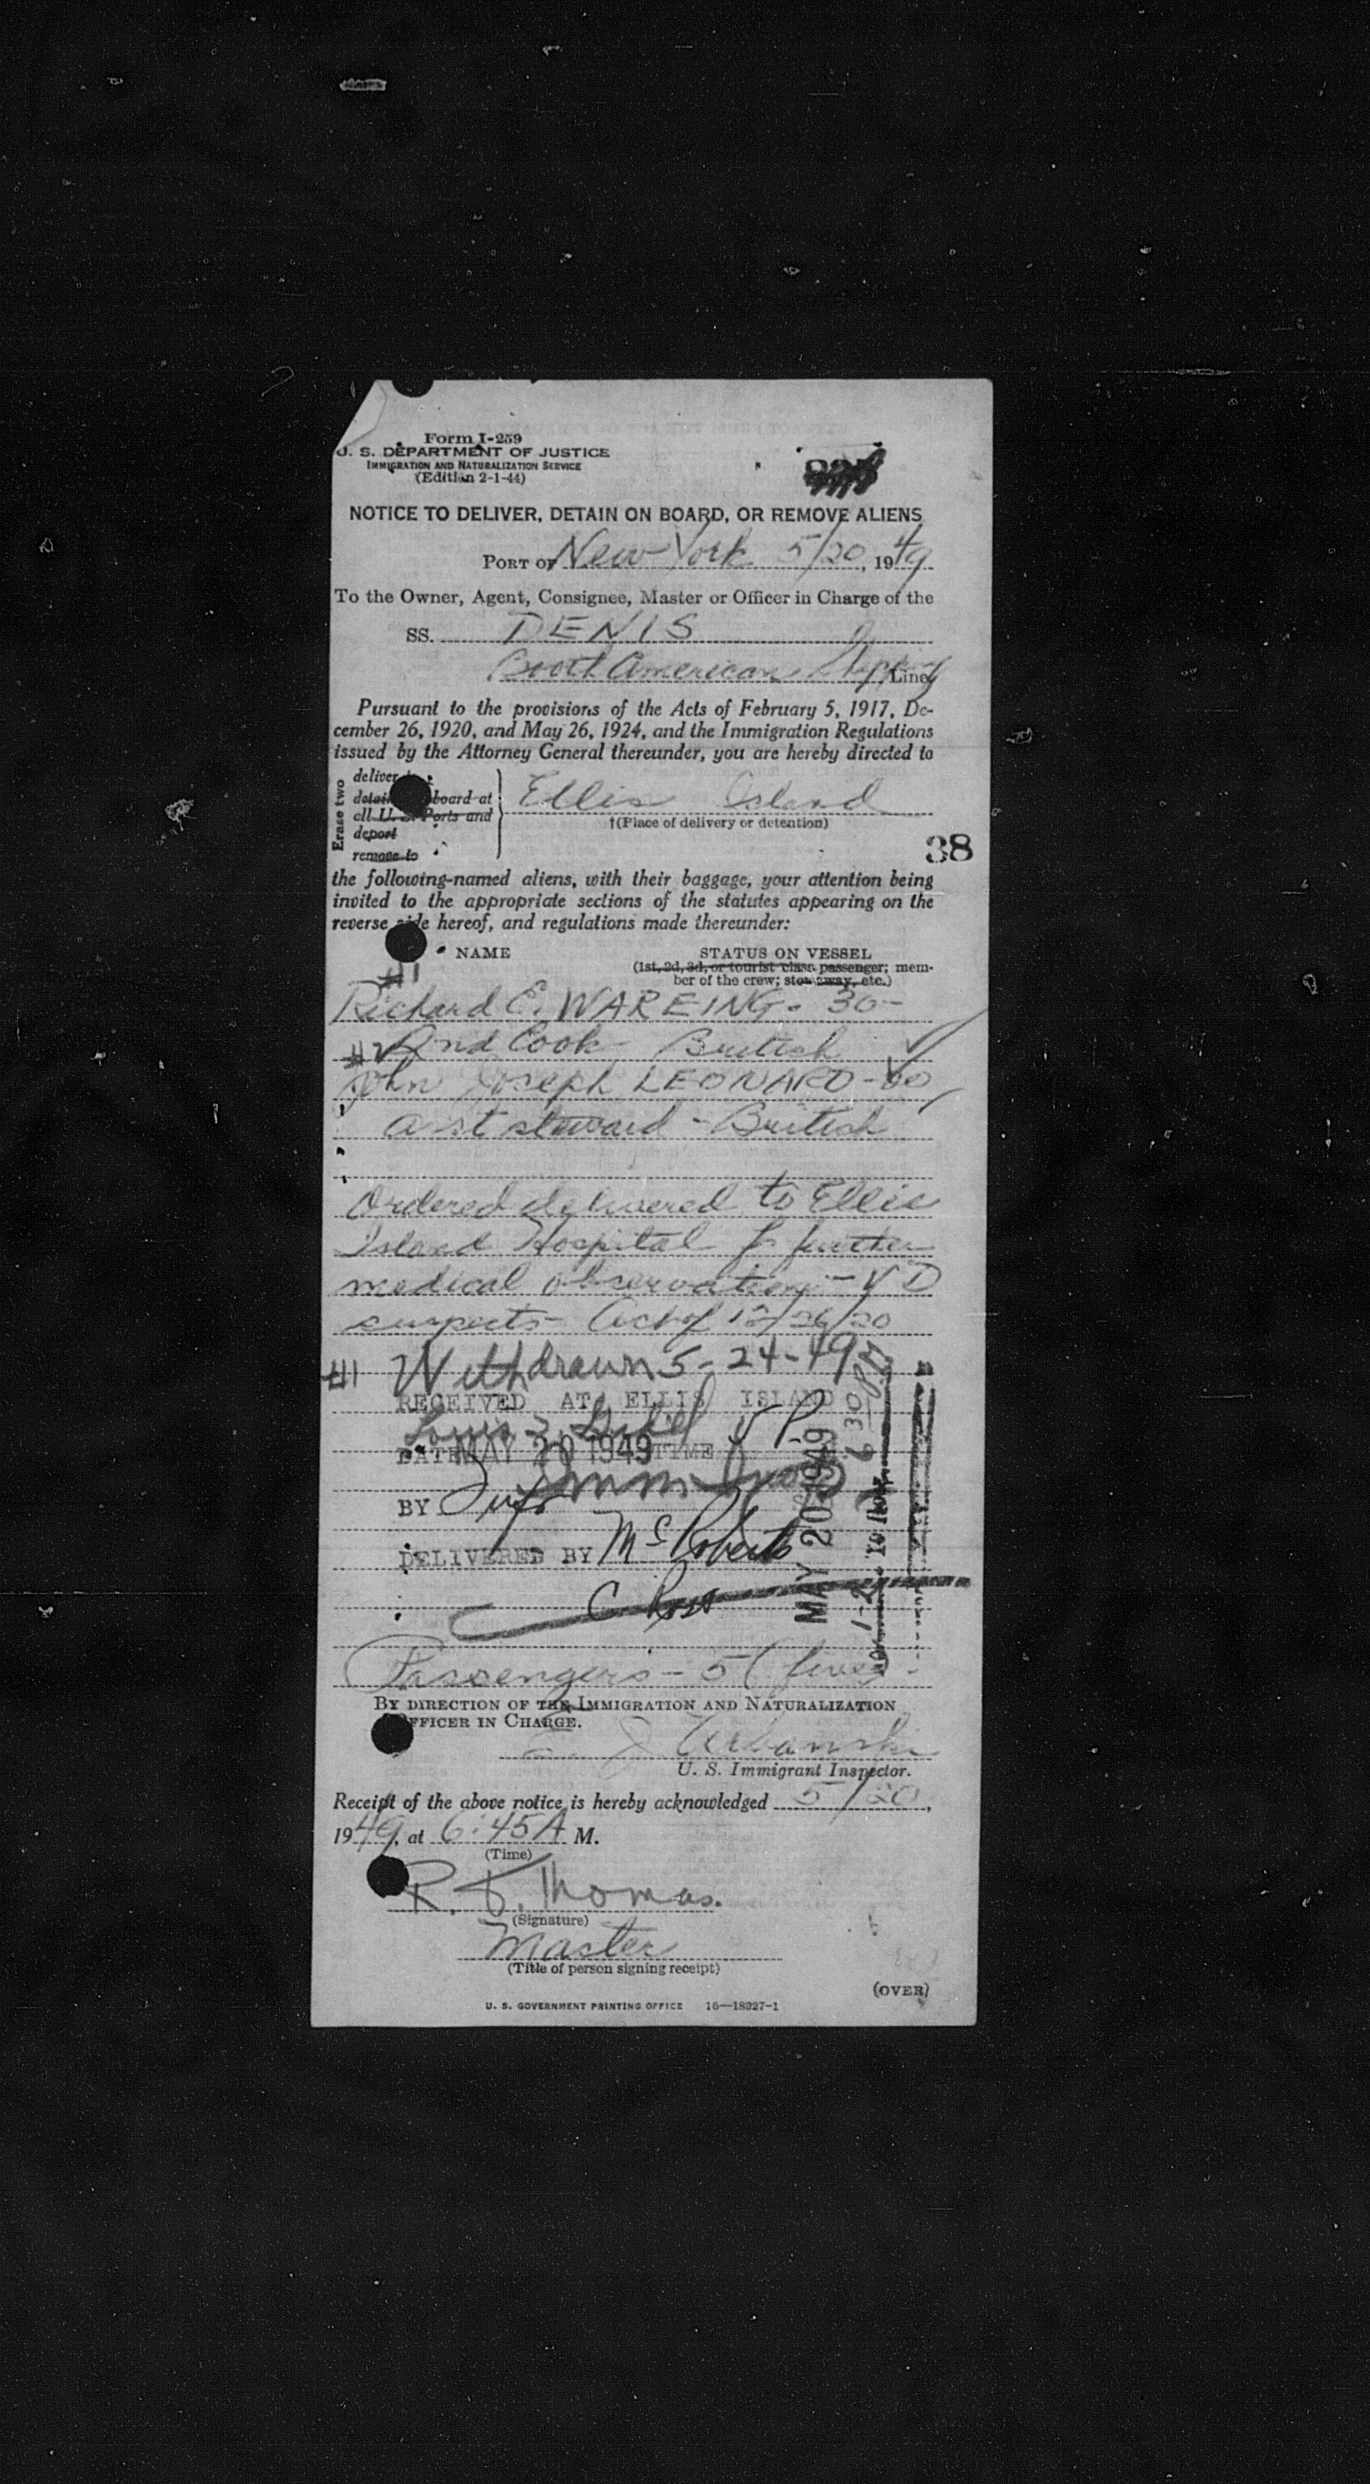 Form I-259
U. S. DEPARTMENT OF JUSTICE
IMMIGRATION AND NATURALIZATION SERVICE
(Edition 2-1-44)
NOTICE TO DELIVER, DETAIN ON BOARD, OR REMOVE ALIENS
PORT OF New York 5/20, 1949
To the Owner, Agent, Consignee, Master or Officer in Charge of the
SS. DENIS
Booth American Shipping Line
Pursuant to the provisions of the Acts of February 5, 1917, De-
cember 26, 1920, and May 26, 1924, and the Immigration Regulations
issued by the Attorney General thereunder, you are hereby directed to
Erase two
deliver to
detain board at
all U. S. Ports and
deport
remove to
Ellis Island
†(Place of delivery or detention)
38
the following-named aliens, with their baggage, your attention being
invited to the appropriate sections of the statutes appearing on the
reverse side hereof, and regulations made thereunder:
NAME
STATUS ON VESSEL
(1st, 2d, 3d, or tourist class passenger; mem-
ber of the crew; stowaway, etc.)
#1
Richard E. WAREING - 30 -
#2 2nd Cook British
John Joseph LEONARD -
asst steward - British
Ordered delivered to Ellis
Island Hospital for further
medical observation - VD
suspects - Act of 12/26/20
#1 Withdrawn 5-24-49
RECEIVED AT ELLIS ISLAND
DATE MAY 20 1949 TIME
BY
DELIVERED BY McRoberts
C Ross
MAY 20 1949
6 30 PM
Passengers - 5 (five)
BY DIRECTION OF THE IMMIGRATION AND NATURALIZATION
OFFICER IN CHARGE.
E. J. Urbanski
U. S. Immigrant Inspector.
Receipt of the above notice is hereby acknowledged 5/20,
1949, at 6:45 A M.
(Time)
R. Thomas.
(Signature)
Master
(Title of person signing receipt)
(OVER)
U. S. GOVERNMENT PRINTING OFFICE 16—18927-1